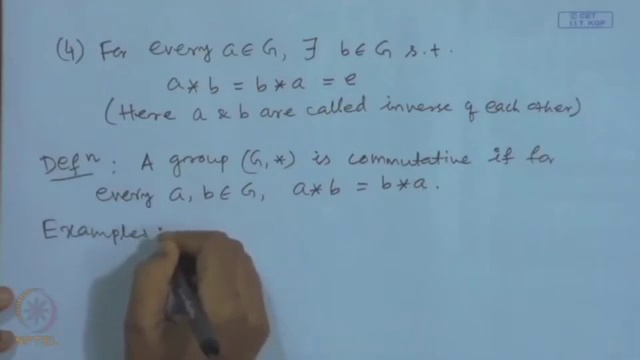 © CET
I.I.T. KGP
(4) For every a ∈ G, ∃ b ∈ G s.t.
a * b = b * a = e
(Here a & b are called inverse of each other)
Defⁿ : A group (G, *) is commutative if for
every a, b ∈ G, a * b = b * a.
Examples :
NPTEL